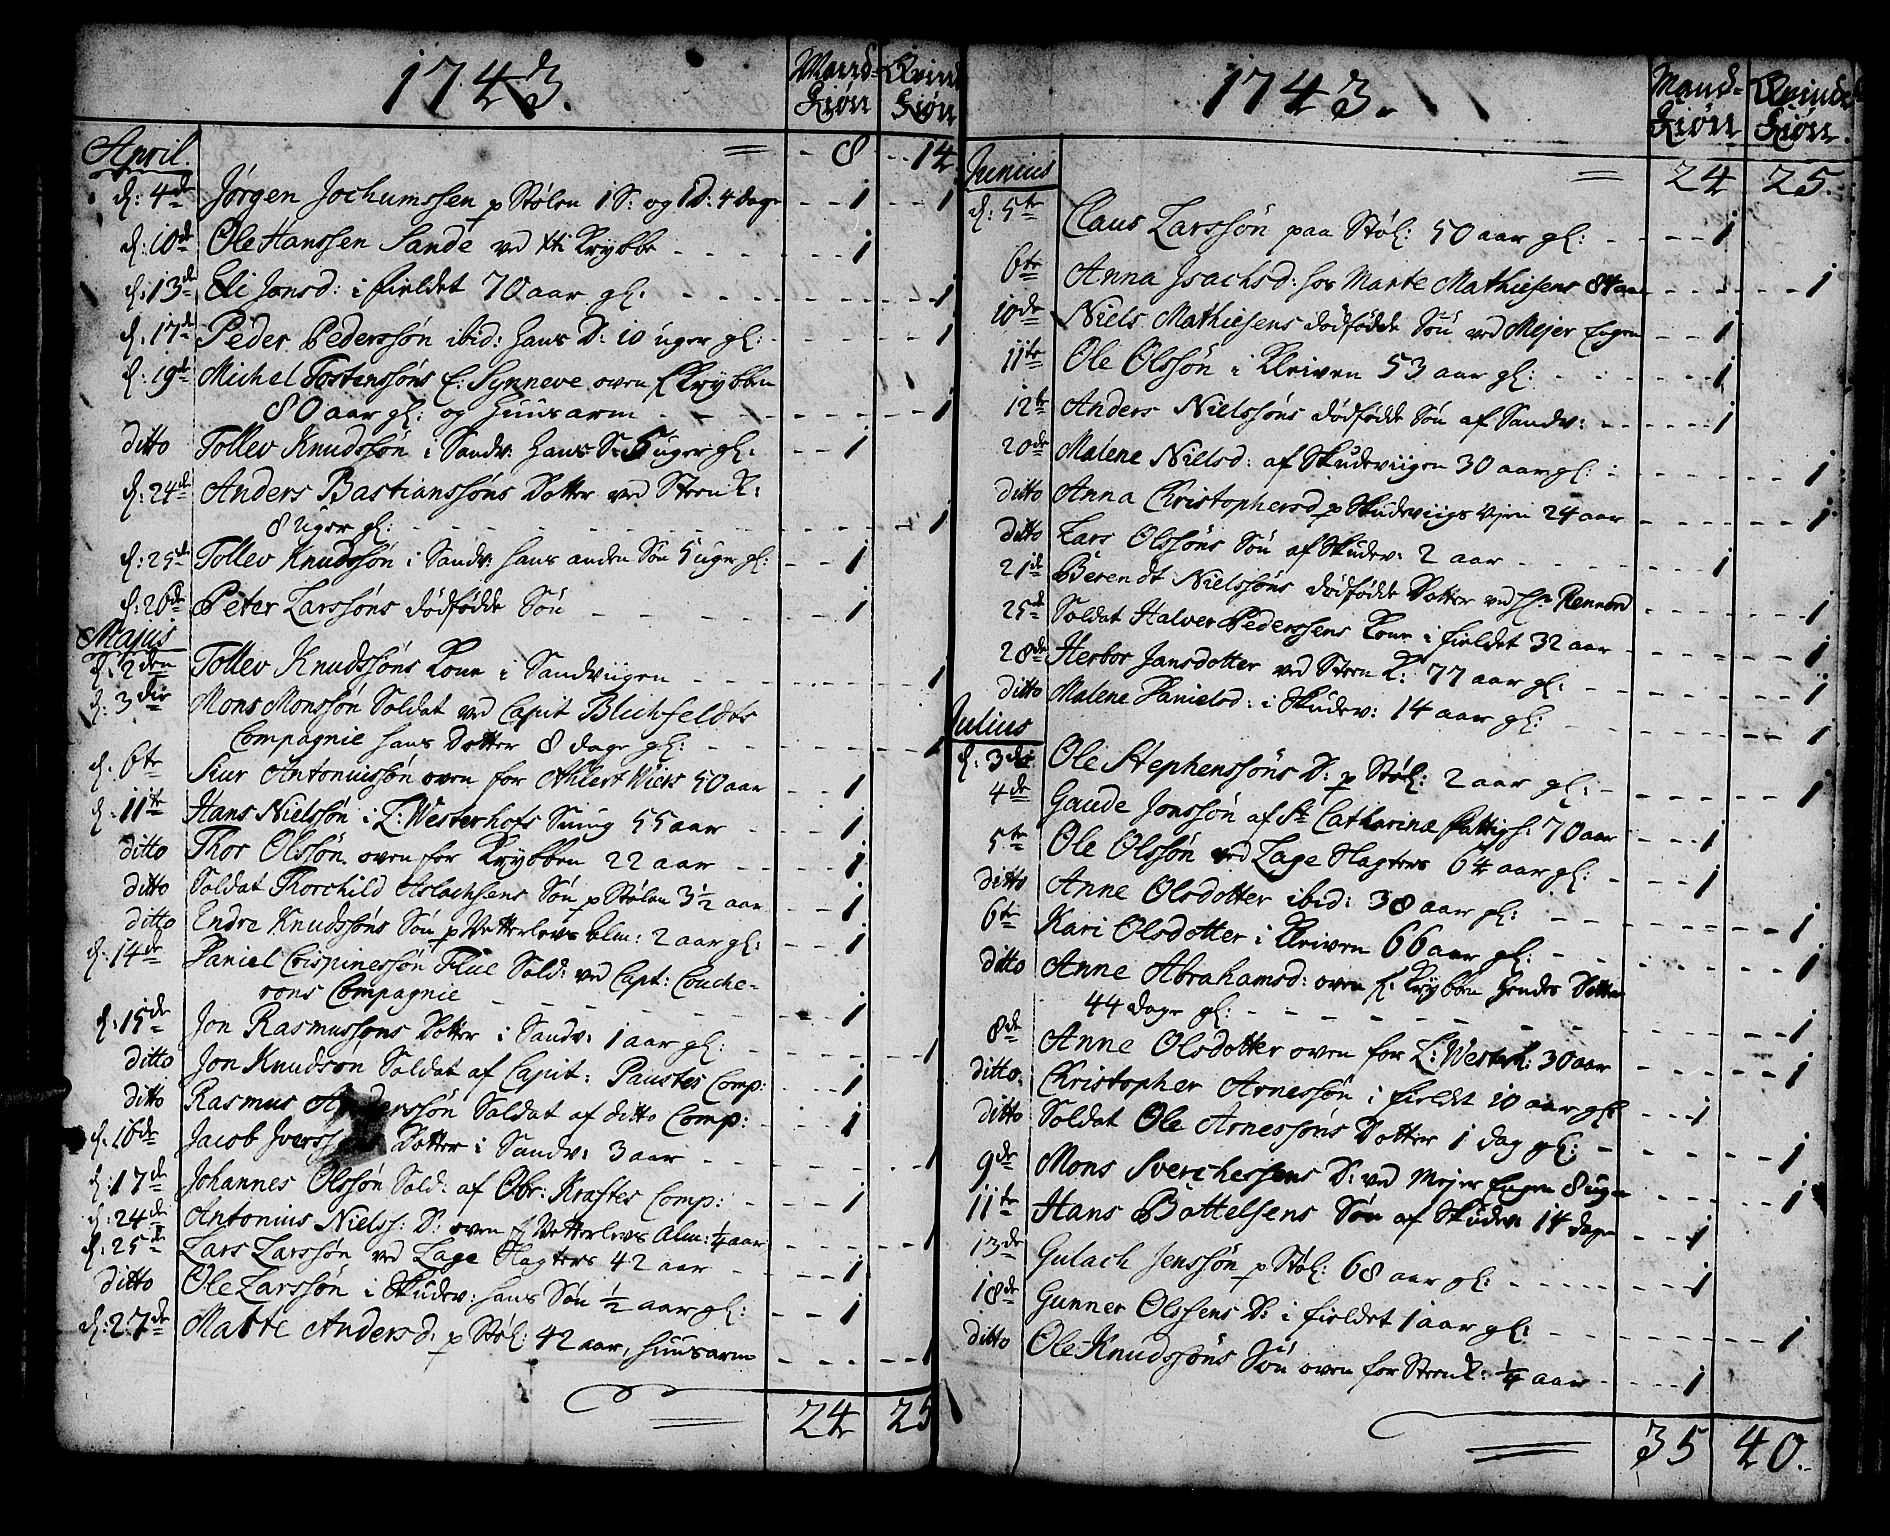 1743. Mand- Kiön Qvind Kiön
April. = - 8 - - 14
d: 4de Jørgen Jochumssen p Stølen 1 S: og 1 D: 4 dage - - 1 - - 1
d: 10de Ole Hanssen Sande ved Krybbe - - - 1
d: 13de Eli Jonsd: i fieldet 70 aar gl: - - - 1
d: 17de Peder Pederssøn ibid: hans D: 10 uger gl: - - - 1
d: 19de Michel Tostenssøns E: Synneve oven f Krybben
80 aar gl: og huusarm - - - 1
ditto Tollev Knudssøn i Sandv: hans S: 5 uger gl: - - 1
d: 24de Anders Bastianssøns Dotter ved Steenk:
8 uger gl: - - - 1
d: 25de Tollev Knudssøn i Sandv: hans anden Søn 5 uger gl: - - 1
d: 26de Peter Larssøns dödfödde Søn - - - 1
Majus
d: 2den Tollev Knudssøns Kone i Sandviigen - - - 1
d: 3die Mons Monssøn Soldat ved Capit Blichfeldts
Compagnie hans Dotter 8 dage gl: - - - 1
d. 6te Siur Antoniussøn oven for Ahlert Wiers 50 aar - - 1
d. 11te Hans Nielssøn i L: Westerhofs Smug 55 aar - - 1
ditto Thor Olssøn oven for Krybben 22 aar - - 1
ditto Soldat Thorchild Aslachsens Søn p Stølen 3½ aar - - 1
ditto Endre Knudssøns Søn p Vetterlevs Alm: 2 aar gl: - - 1
d. 14de Daniel Crispinessøn Flue Sold: ved Capt: Couche-
rons Compagnie - - - 1
d. 15de Jon Rasmussøns Dotter i Sandv: 1 aar gl: - - - 1
ditto Jon Knudsøn Soldat af Capit: Paustes Comp: - - - 1
ditto Rasmus Anderssøn Soldat af ditto Comp: - - - 1
d. 16de Jacob Dotter i Sandv: 3 aar - - - 1
d. 17de Johannes Olssøn Sold: af Obr: Kraftes Comp: - - 1
d: 24de Antonius Nielss: D: oven f Vetterlevs Alm: ¼ aar - - - 1
d: 25de Lars Larssøn ved Lage Slagters 42 aar - - - 1
ditto Ole Larssøn i Skudev: hans Søn ½ aar gl: - - 1
d: 27de Marte Andersd: p Støl: 42 aar, huusarm - - - 1
24 25
1743. Mand- Kiön Qvinde Kiön.
Junius = 24 25.
d: 5te Claus Larssøn paa Støl: 50 aar gl: - - - 1
6te Anna Isachsd: hos Marte Mathiesens 84 aar - - - 1
10de Niels Mathiesens dödfödde Søn ved Mejer Engen - - 1
11te Ole Olssøn i Kleiven 53 aar gl: - - - 1
12te Anders Nielssøns dödfödde Søn af Sandv: - - - 1
20de Malene Nielsd: af Skudeviigen 30 aar gl: - - - 1
ditto Anna Christophersd p Skudeviigs Vjen 24 aar - - - 1
ditto Lars Olssøns Søn af Skudev: 2 aar - - - 1
21de Berendt Nielssøns dödfödde Dotter ved Rennord - - - 1
25de Soldat Halver Pederssens Kone i fieldet 32 aar - - - 1
28de Herbor Jansdotter ved Steenk: 77 aar gl: - - - 1
ditto Malene Danielsd: i Skudev: 14 aar gl: - - - 1
Julius
d: 3die Ole Stephenssøns D: p Støl: 2 aar gl: - - - 1
4de Gaude Jonssøn af St Catharinæ fattigh: 70 aar - - 1
5te Ole Olssøn ved Lage Slagters 64 aar gl: - - - 1
ditto Anne Olsdotter ibid: 38 aar gl: - - - 1
6te Kari Olsdotter i Kleiven 66 aar gl: - - - 1
ditto Anne Abrahamsd: oven f: Krybben hendes Dotter
44 dage gl: - - - 1
8de Anne Olsdotter oven for L: Westerh: 30 aar - - - 1
ditto. Christopher Arnessøn i fieldet 10 aar gl: - - 1
ditto Soldat Ole Arnessøns Dotter 1 dag gl: - - - 1
9de Mons Sverchessens D: ved Mejer Engen 8 uger - - - 1
11te Hans Bottelsens Søn af Skudev: 14 dage - - 1
13de Gulach Jenssøn p Støl: 68 aar gl: - - - 1
18de Gunner Olssens D: i fieldet 1 aar gl: - - - 1
ditto Ole Knudssøns Søn oven for Steenk: ¼ aar - - - 1
35 40.